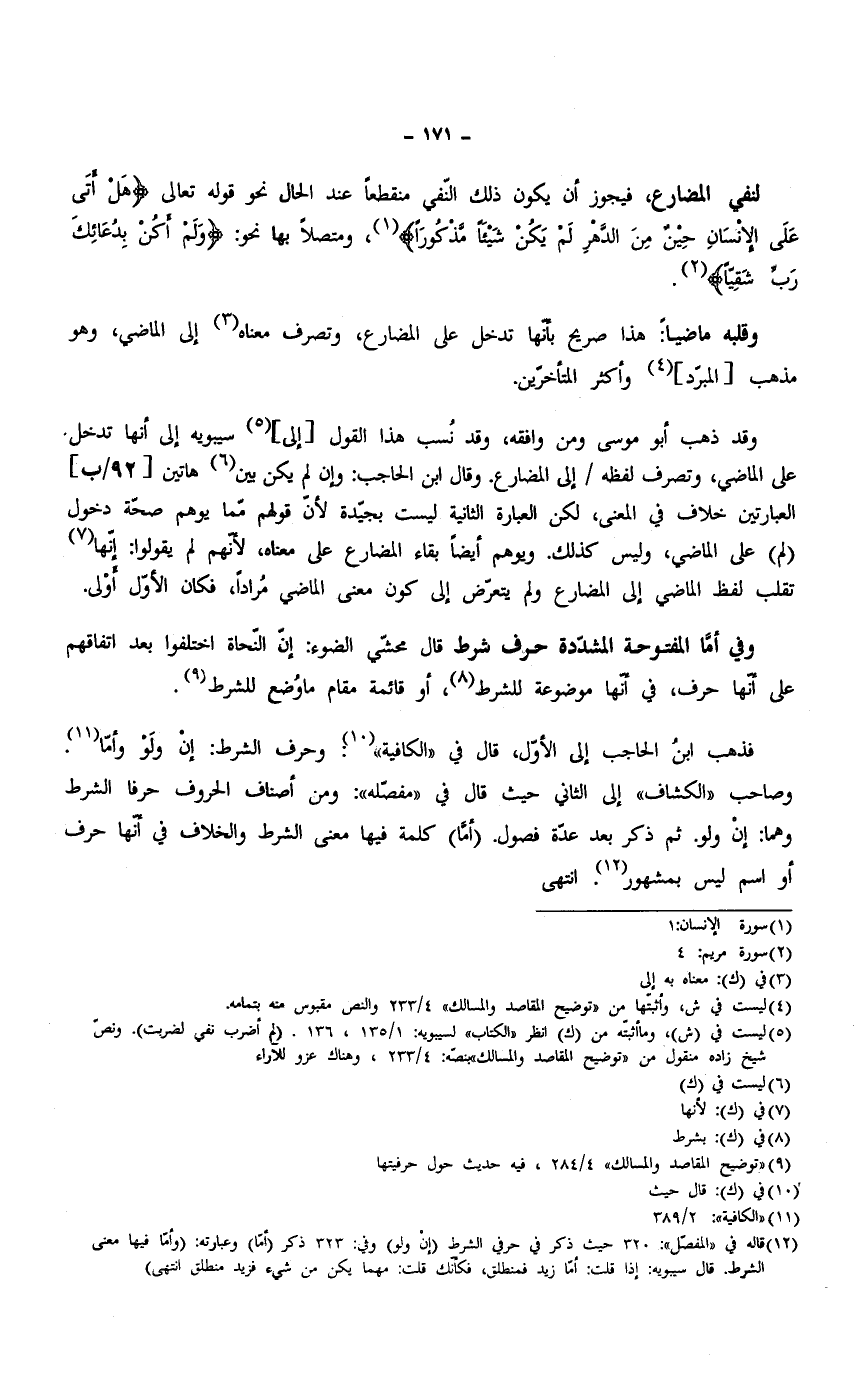 - ١٧١ -
لنفي المضارع، فيجوز أن يكون ذلك النّفي منقطعاً عند الحال نحو قوله تعالى ﴿هَلْ أَتَى
عَلَى الإِنْسَانِ حِيْنٌ مِنَ الدَّهْرِ لَمْ يَكُنْ شَيْئَاً مَّذْكُورَاً﴾(١)، ومتصلاً بها نحو: ﴿وَلَمْ أَكُنْ بِدُعَائِكَ
رَبِّ شَقِيَّاً﴾(٢).
وقلبه ماضياً: هذا صريح بأنّها تدخل على المضارع، وتصرف معناه(٣) إلى الماضي، وهو
مذهب [المبرّد](٤) وأكثر المتأخرّين.
وقد ذهب أبو موسى ومن وافقه، وقد نُسب هذا القول [إلى](٥) سيبويه إلى أنها تدخل
على الماضي، وتصرف لفظه / إلى المضارع. وقال ابن الحاجب: وإن لم يكن بين(٦) هاتين [٩٢/ب]
العبارتين خلاف في المعنى، لكن العبارة الثانية ليست بجيّدة لأنّ قولهم مّما يوهم صحّة دخول
(لم) على الماضي، وليس كذلك. ويوهم أيضاً بقاء المضارع على معناه، لأنّهم لم يقولوا: إنّها(٧)
تقلب لفظ الماضي إلى المضارع ولم يتعرّض إلى كون معنى الماضي مُراداً، فكان الأوّل أَوْلى.
وفي أمَّا المفتوحة المشدّدة حرف شرط قال محشّي الضوء: إنّ النّحاة اختلفوا بعد اتفاقهم
على أنّها حرف، في أنّها موضوعة للشرط(٨)، أو قائمة مقام ماوُضع للشرط(٩).
فذهب ابنُ الحاجب إلى الأوّل، قال في «الكافية»(١٠): وحرف الشرط: إنْ ولَوْ وأمّا(١١).
وصاحب «الكشاف» إلى الثاني حيث قال في «مفصّله»: ومن أصناف الحروف حرفا الشرط
وهما: إنْ ولو. ثم ذكر بعد عدّة فصول. (أمَّا) كلمة فيها معنى الشرط والخلاف في أنّها حرف
أو اسم ليس بمشهور(١٢). انتهى
(١) سورة الإنسان: ١
(٢) سورة مريم: ٤
(٣) في (ك): معناه به إلى
(٤) ليست في ش، وأثبتّها من «توضيح المقاصد والمسالك» ٢٣٣/٤ والنص مقبوس منه بتمامه.
(٥) ليست في (ش)، وماأثبتّه من (ك) انظر «الكتاب» لسيبويه: ١٣٥/١ ، ١٣٦ . (لم أضرب نفي لضربت). ونصّ
شيخ زاده منقول من «توضيح المقاصد والمسالك»بنصّه: ٢٣٣/٤ ، وهناك عزو للآراء
(٦) ليست في (ك)
(٧) في (ك): لأنها
(٨) في (ك): بشرط
(٩) «توضيح المقاصد والمسالك» ٢٨٤/٤ ، فيه حديث حول حرفيتها
(١٠) في (ك): قال حيث
(١١) «الكافية»: ٣٨٩/٢
(١٢) قاله في «المفصّل»: ٣٢٠ حيث ذكر في حرفي الشرط (إنْ ولو) وفي: ٣٢٣ ذكر (أمّا) وعبارته: (وأمّا فيها معنى
الشرط. قال سيبويه: إذا قلت: أمّا زيد فمنطلق، فكأنّك قلت: مهما يكن من شيء فزيد منطلق انتهى)